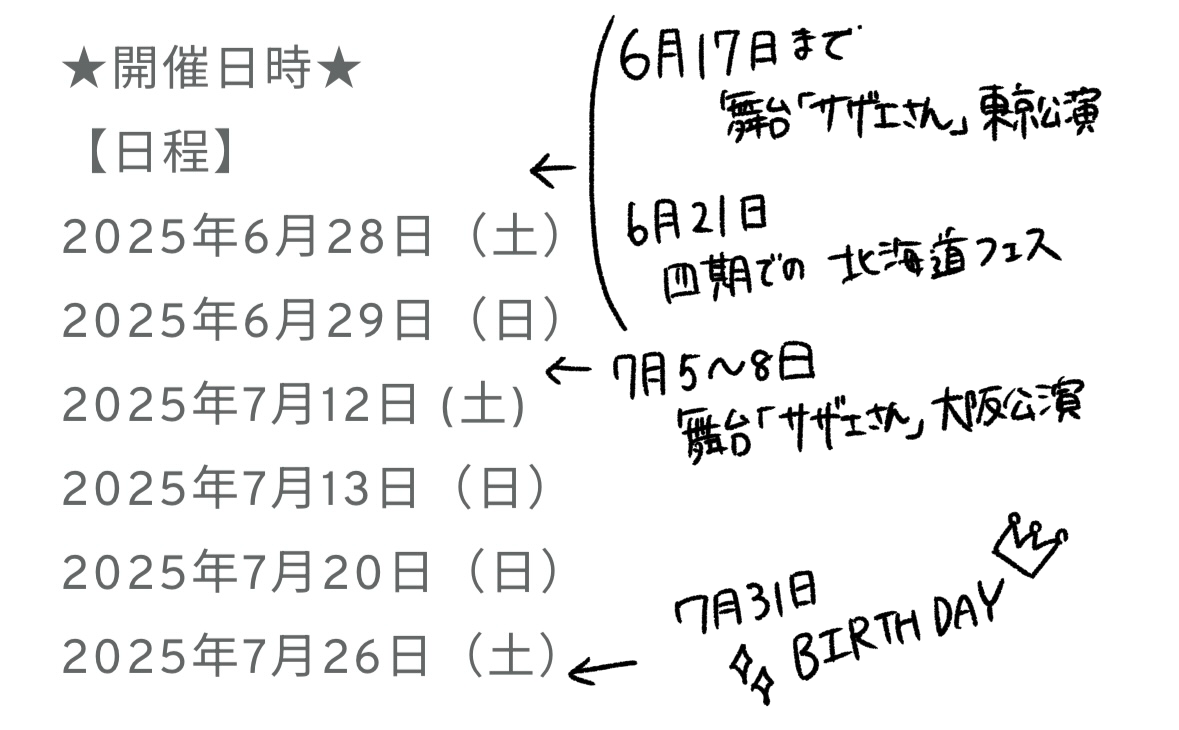 ★開催日時★
【日程】
2025年6月28日（土）
2025年6月29日（日）
2025年7月12日 (土)
2025年7月13日（日）
2025年7月20日（日）
2025年7月26日（土）
6月17日まで
舞台「サザエさん」東京公演
6月21日
四期での 北海道フェス
7月5〜8日
舞台「サザエさん」大阪公演
7月31日
BIRTH DAY